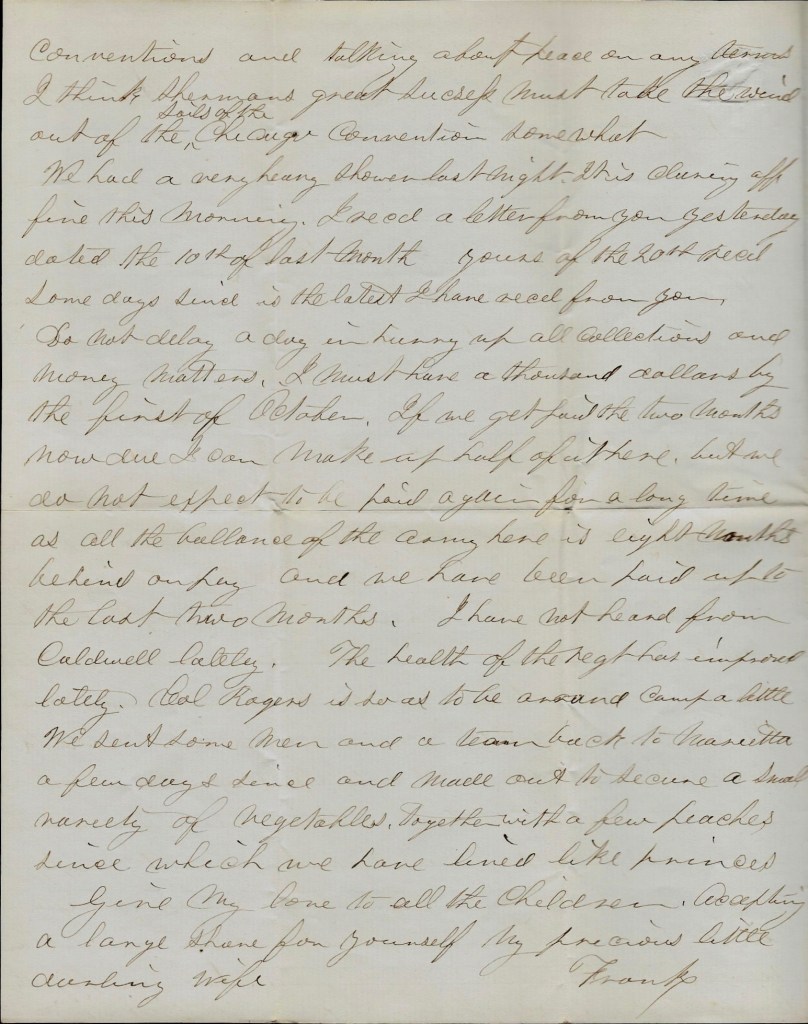 Conventions and talking about peace on any terms
I think Shermans great sucsess must take the wind
sails of the
out of the ^ Chicago Convention somewhat
We had a very heavy shower last night. It is clearing off
fine this morning. I recd a letter from you yesterday
dated the 10th of last month yours of the 20th recd
some days since is the latest I have recd from you.
Do not delay a day in hurry up all collections and
money matters. I must have a thousand dollars by
the first of October. If we get paid the two months
now due I can make up half of it here. but we
do not expect to be paid again for a long time
as all the ballance of the army here is eight months
behind on pay and we have been paid up to
the last two months. I have not heard from
Caldwell lately. The health of the regt has improved
lately. Col Rogers is so as to be around camp a little
We sent some men and a team back to Marietta
a few days since and made out to secure a small
variety of vegetables. Together with a few peaches
since which we have lived like princes
Give my love to all the children. Accepting
a large share for yourself my precious little
darling wife Frank